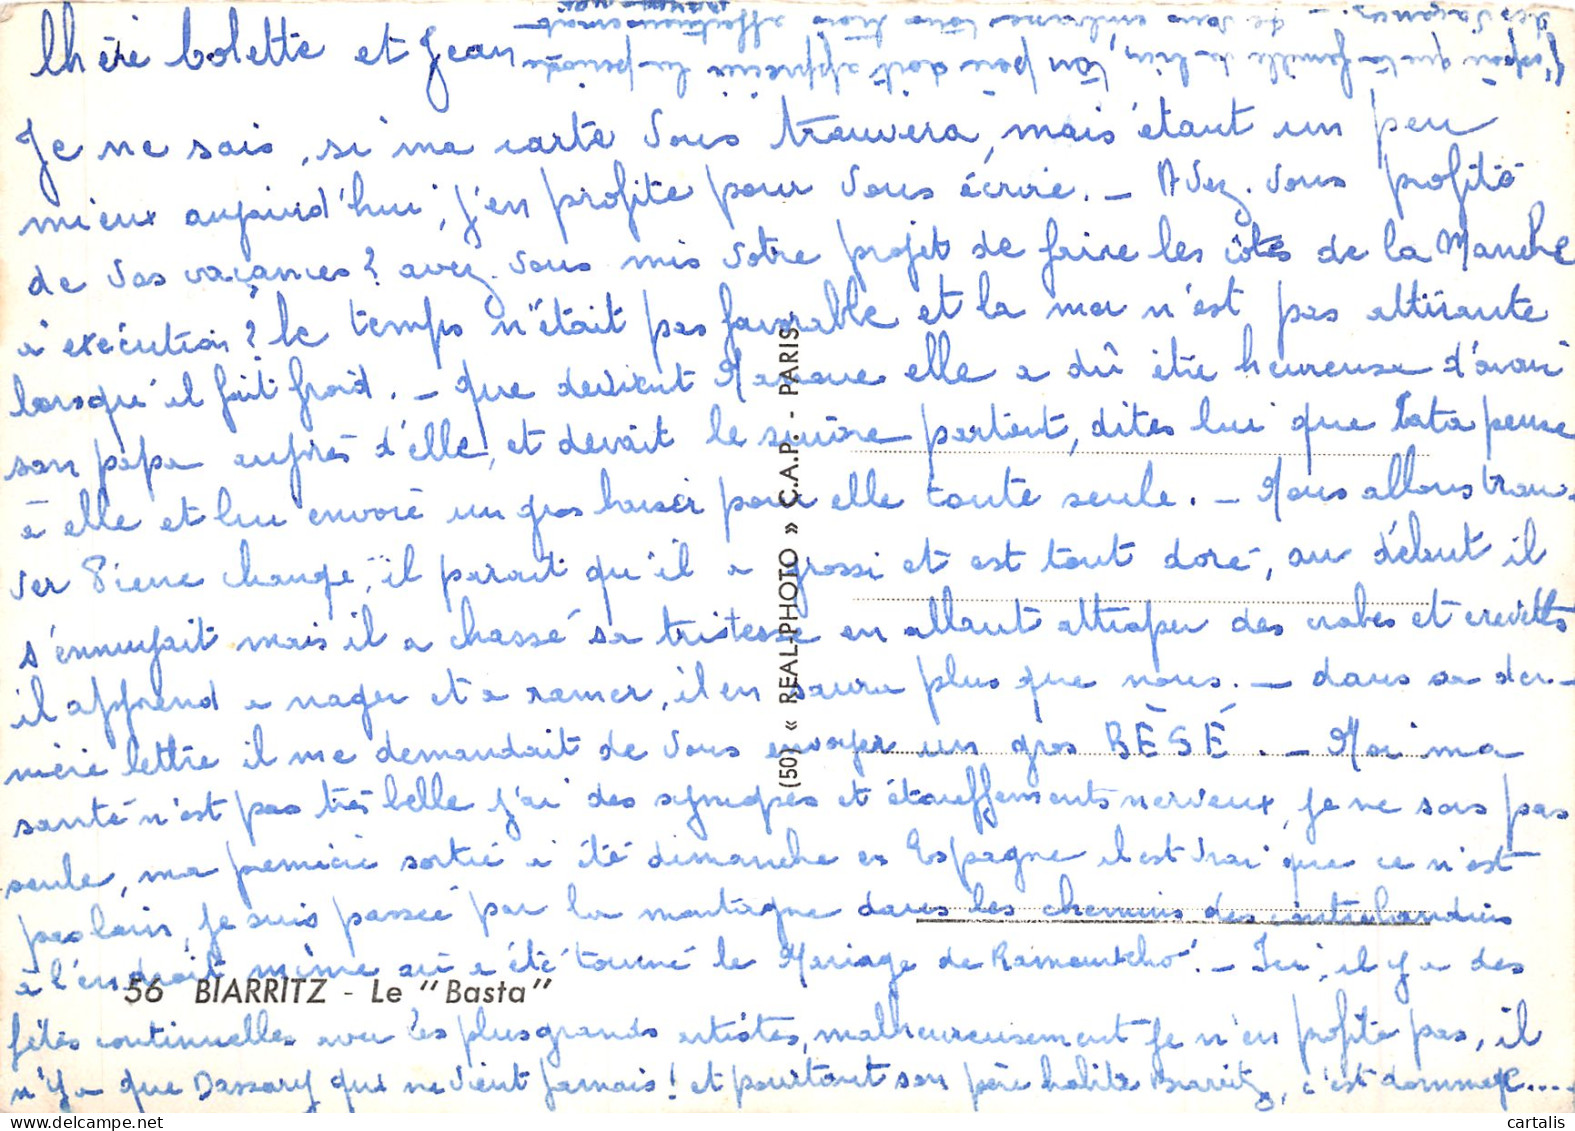 Chère Colette et Jean
Je ne sais, si ma carte vous trouvera, mais étant un peu
mieux aujourd'hui, j'en profite pour vous écrire. – Avez-vous profité
de vos vacances? avez-vous mis votre projet de faire les côtes de la Manche
à exécution? le temps n'était pas favorable et la mer n'est pas attirante
lorsqu'il fait froid. – Que devient elle a dû être heureuse d'avoir
son papa auprès d'elle, et devait le suivre partout, dites lui que Tata pense
à elle et lui envoie un gros baiser pour elle toute seule. – Nous allons trou-
ver change, il parait qu'il a grossi et est tout doré, au début il
s'ennuyait mais il a chassé sa tristesse en allant attraper des crabes et crevettes
il apprend a nager et a ramer, il en saura plus que nous. – dans sa der-
nière lettre il me demandait de vous envoyer un gros BÈSÉ. – Moi ma
santé n'est pas très belle j'ai des synopes et étouffements nerveux, je ne sors pas
seule, ma première sortie a été dimanche en Espagne il est vrai que ce n'est
pas loin, je suis passée par la montagne dans les chemins des contrebandiers
à l'endroit même où a été tourné le Mariage de Ramountcho. – Ici, il y a des
fêtes continuelles avec les plus grands artistes, malheureusement je n'en profite pas, il
n'y a que Dassary qui ne vient jamais! et pourtant son père habite Biarritz, c'est dommage....
J'espère que ta famille va bien, ton père doit apprécier la période
des vacances. – Je vous embrasse tous trois affectueusement
(50) « REAL-PHOTO » C.A.P. - PARIS.
56 BIARRITZ - Le "Basta"
cartalis